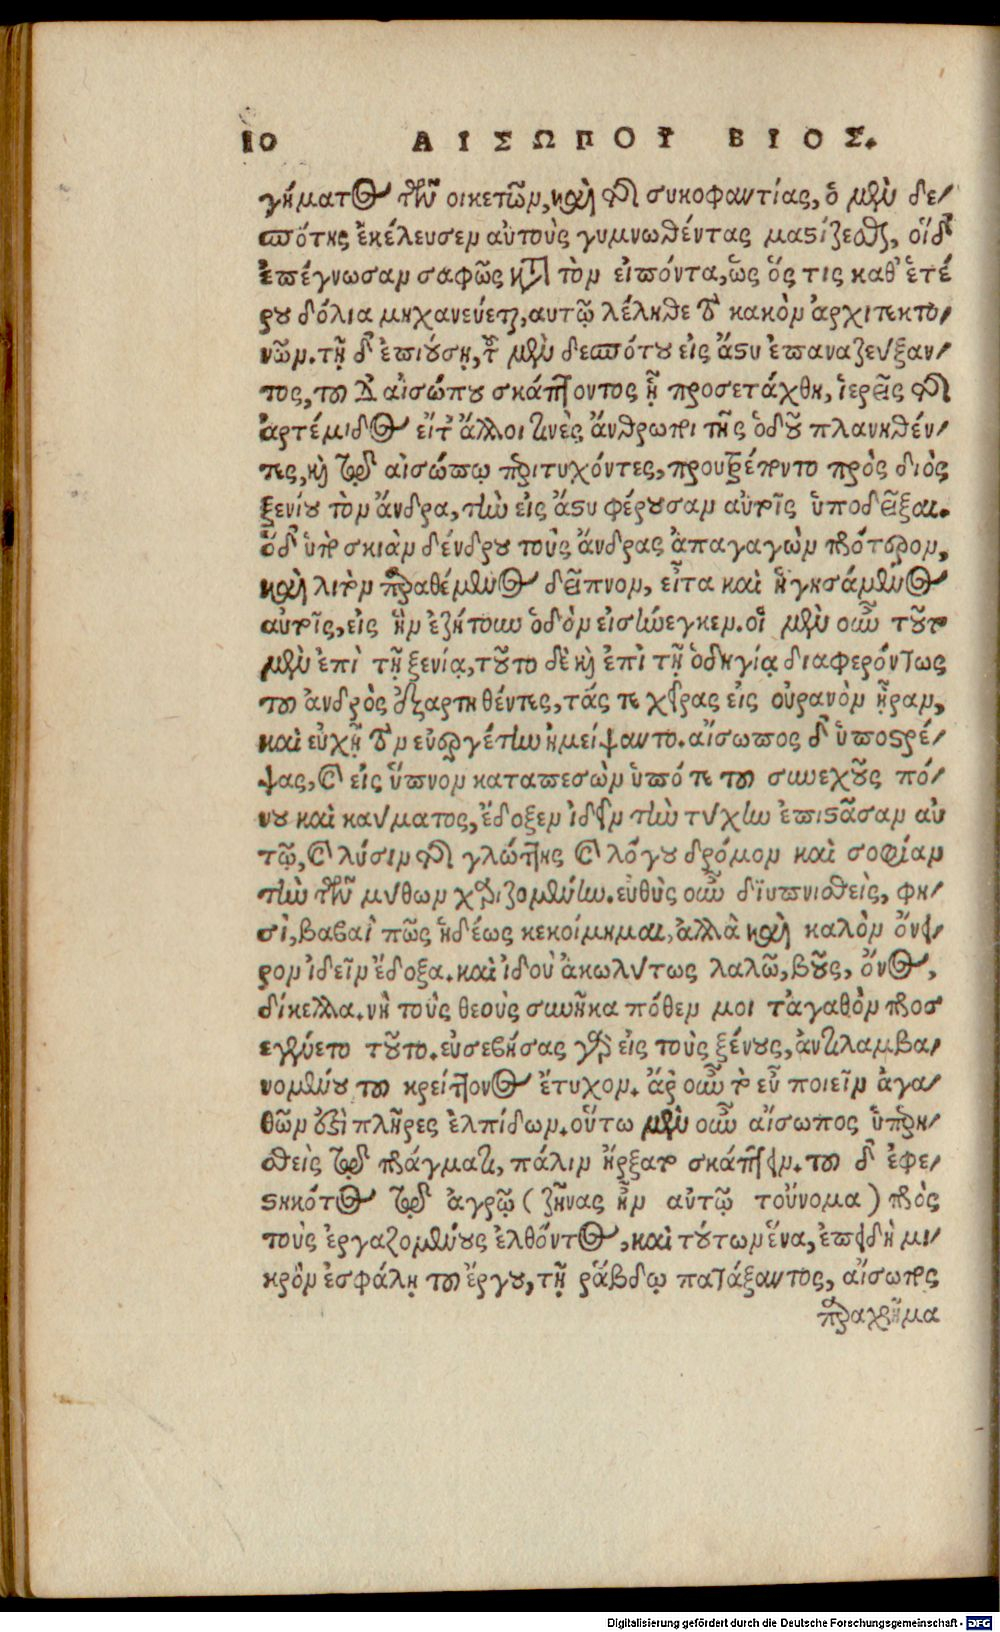 10 ΑΙΣΩΠΟΥ ΒΙΟΣ.
γήματος τῶν οἰκετῶν, καὶ τῆς συκοφαντίας, ὁ μὲν δε-
σπότης ἐκέλευσεν αὐτοὺς γυμνωθέντας μαστίζεσθαι, οἱ δ'
ἐπέγνωσαν σαφῶς κατὰ τὸν εἰπόντα, ὡς ὅς τις καθ' ἑτέ
ρου δόλια μηχανεύεται, αὐτῷ λέληθε τὸ κακὸν ἀρχιτεκτο-
νῶν. τῇ δ' ἐπιούσῃ, τοῦ μὲν δεσπότου εἰς ἄστυ ἐπαναζεύξαν-
τος, τοῦ δὲ αἰσώπου σκάπτοντος ᾗ προσετάχθη, ἱερεῖς τῆς
ἀρτέμιδος εἴτ' ἄλλοι τινὲς ἄνθρωποι τῆς ὁδοῦ πλανηθέν-
τες, καὶ τῷ αἰσώπῳ περιτυχόντες, προυτρέποντο πρὸς διὸς
ξενίου τὸν ἄνδρα, τὴν εἰς ἄστυ φέρουσαν αὐτοῖς ὑποδεῖξαι.
ὁ δ' ὑπὸ σκιὰν δένδρου τοὺς ἄνδρας ἀπαγαγὼν πρότερον,
καὶ λιτὸν παραθέμενος δεῖπνον, εἶτα καὶ ἡγησάμενος
αὐτοῖς, εἰς ἣν ἐζήτουν ὁδὸν εἰσήνεγκεν. οἱ μὲν οὖν τοῦτο
μὲν ἐπὶ τῇ ξενίᾳ, τοῦτο δὲ καὶ ἐπὶ τῇ ὁδηγίᾳ διαφερόντως
τοῦ ἀνδρὸς ἐξαρτηθέντες, τάς τε χεῖρας εἰς οὐρανὸν ᾖραν,
καὶ εὐχῇ τὸν εὐεργέτην ἠμείψαντο. αἴσωπος δ' ὑποστρέ-
ψας, καὶ εἰς ὕπνον καταπεσὼν ὑπό τε τοῦ συνεχοῦς πό-
νου καὶ καύματος, ἔδοξεν ἰδεῖν τὴν τύχην ἐπιστᾶσαν αὐ
τῷ, καὶ λύσιν τῆς γλώττης καὶ λόγου δρόμον καὶ σοφίαν
τὴν τῶν μύθων χαριζομένην. εὐθὺς οὖν διϋπνισθεὶς, φη-
σὶ, βαβαὶ πῶς ἡδέως κεκοίμημαι, ἀλλὰ καὶ καλὸν ὄνει-
ρον ἰδεῖν ἔδοξα. καὶ ἰδοὺ ἀκωλύτως λαλῶ, βοῦς, ὄνος,
δίκελλα. νὴ τοὺς θεοὺς συνῆκα πόθεν μοι τἀγαθὸν προσ
εγένετο τοῦτο. εὐσεβήσας γὰρ εἰς τοὺς ξένους, ἀντιλαμβα-
νομένου τοῦ κρείττονος ἔτυχον. ἆρ' οὖν τὸ εὖ ποιεῖν ἀγα-
θῶν ἐστὶ πλῆρες ἐλπίδων. οὕτω μὲν οὖν αἴσωπος ὑπερη-
σθεὶς τῷ πράγματι, πάλιν ἤρξατο σκάπτειν. τοῦ δ' ἐφε-
στηκότος τῷ ἀγρῷ (ζῆνας ἦν αὐτῷ τοὔνομα) πρὸς
τοὺς ἐργαζομένους ἐλθόντος, καὶ τούτων ἕνα, ἐπειδὴ μι-
κρὸν ἐσφάλη τοῦ ἔργου, τῇ ῥάβδῳ πατάξαντος, αἴσωπος
παραχρῆμα
Digitalisierung gefördert durch die Deutsche Forschungsgemeinschaft - DFG